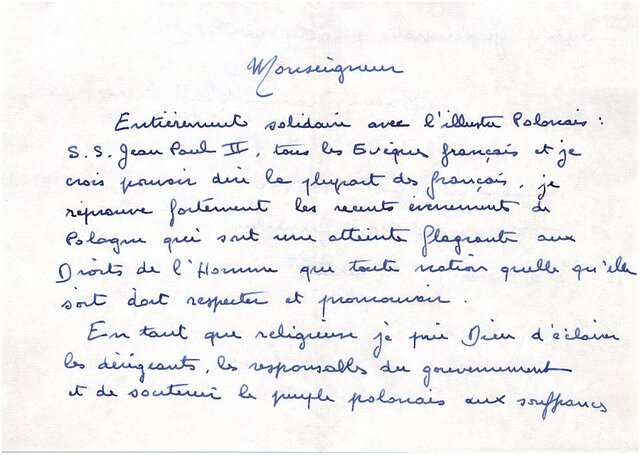 Monseigneur
Entièrement solidaire avec l'illustre Polonais :
S.S. Jean Paul II, tous les Evêques français et je
crois pouvoir dire la plupart des français, je
réprouve fortement les récents évènements de
Pologne qui sont une atteinte flagrante aux
Droits de l'Homme que toute nation quelle qu'elle
soit doit respecter et promouvoir.
En tant que religieuse je prie Dieu d'éclairer
les dirigeants, les responsables du gouvernement
et de soutenir le peuple polonais aux souffrances